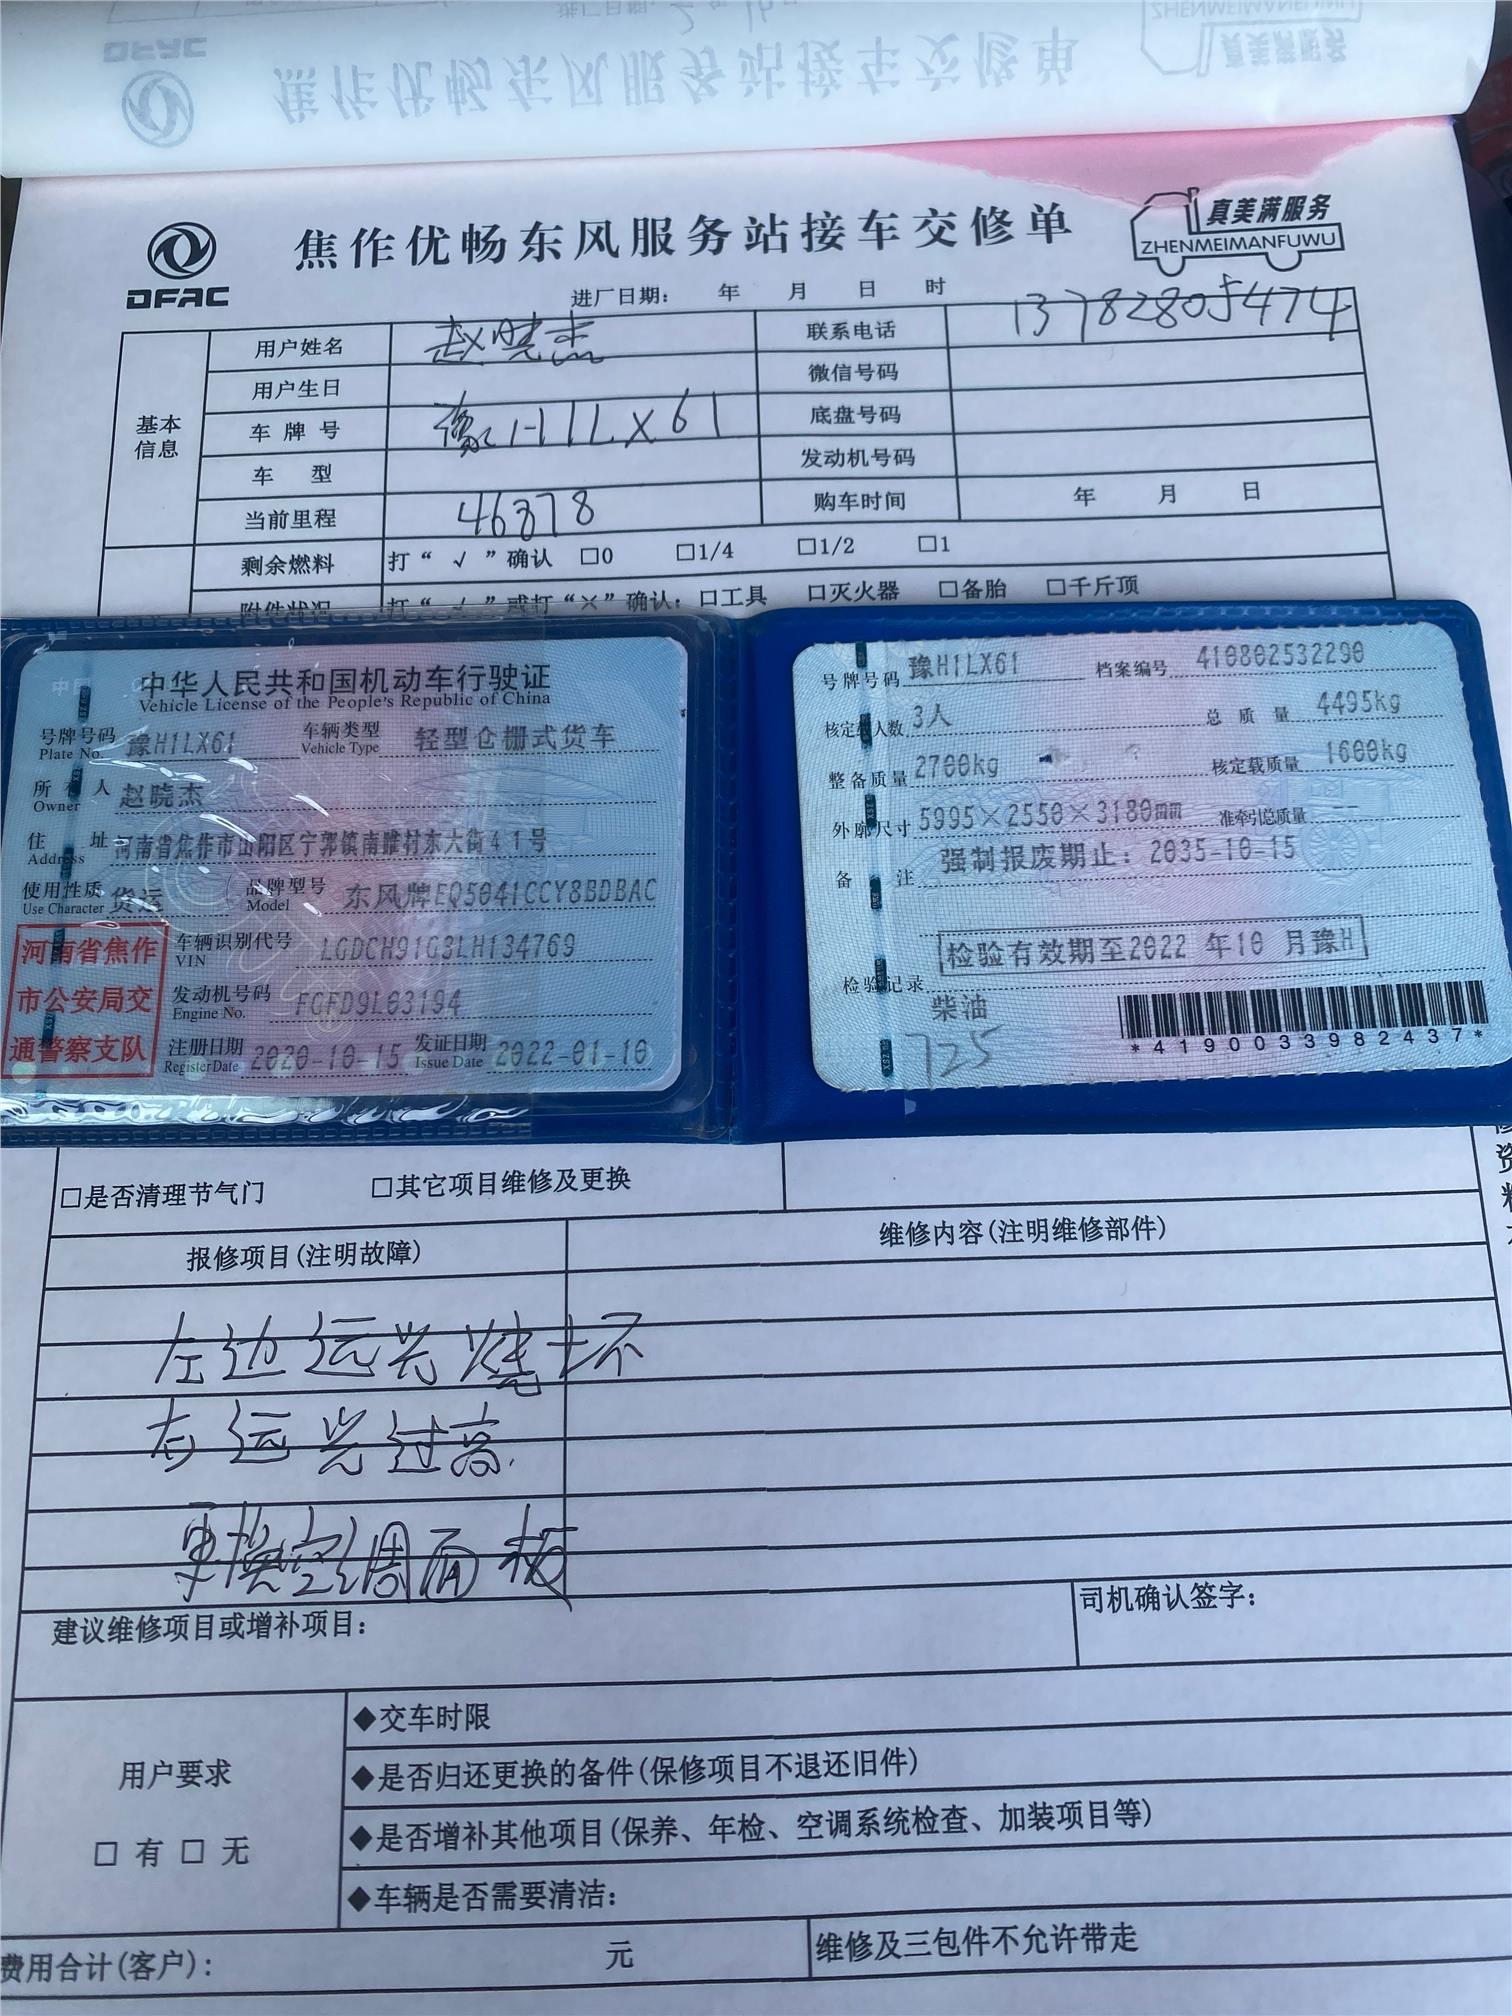 焦作优畅东风服务站接车交修单
DFAC
真美满服务
ZHENMEIMANFUWU
进厂日期： 年 月 日 时
基本信息
用户姓名 赵晓杰 联系电话 13782805474
用户生日 微信号码
车牌号 豫H1LX61 底盘号码
车 型 发动机号码
当前里程 46378 购车时间 年 月 日
剩余燃料 打“√”确认 □0 □1/4 □1/2 □1
附件状况 打“√”或打“×”确认：□工具 □灭火器 □备胎 □千斤顶
中华人民共和国机动车行驶证
Vehicle License of the People's Republic of China
号牌号码 Plate No. 豫H1LX61 车辆类型 Vehicle Type 轻型仓栅式货车
所有人 Owner 赵晓杰
住 址 Address 河南省焦作市山阳区宁郭镇南睢村东大街41号
使用性质 Use Character 货运 品牌型号 Model 东风牌EQ5041CCY8BDBAC
河南省焦作市公安局交通警察支队
车辆识别代号 VIN LGDCH91G3LH134769
发动机号码 Engine No. FGFD9L03194
注册日期 Register Date 2020-10-15 发证日期 Issue Date 2022-01-10
号牌号码 豫H1LX61 档案编号 410802532290
核定载人数 3人 总质量 4495kg
整备质量 2700kg 核定载质量 1600kg
外廓尺寸 5995×2550×3180mm 准牵引总质量 --
备 注 强制报废期止：2035-10-15
检验有效期至2022年10月豫H
检验记录
柴油
125
*4190033982437*
□是否清理节气门 □其它项目维修及更换
报修项目(注明故障) 维修内容(注明维修部件)
左边远光烧坏
右远光过高
更换空调面板
建议维修项目或增补项目： 司机确认签字：
用户要求
□ 有 □ 无
◆交车时限
◆是否归还更换的备件(保修项目不退还旧件)
◆是否增补其他项目(保养、年检、空调系统检查、加装项目等)
◆车辆是否需要清洁：
费用合计(客户)： 元 维修及三包件不允许带走